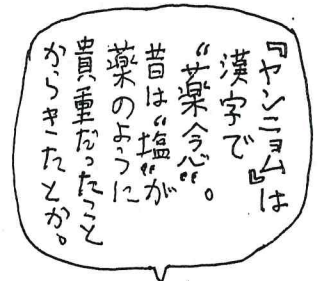 『ヤンニョム』は
漢字で
“薬念”。
昔は“塩”が
薬のように
貴重だったこと
からきたとか。